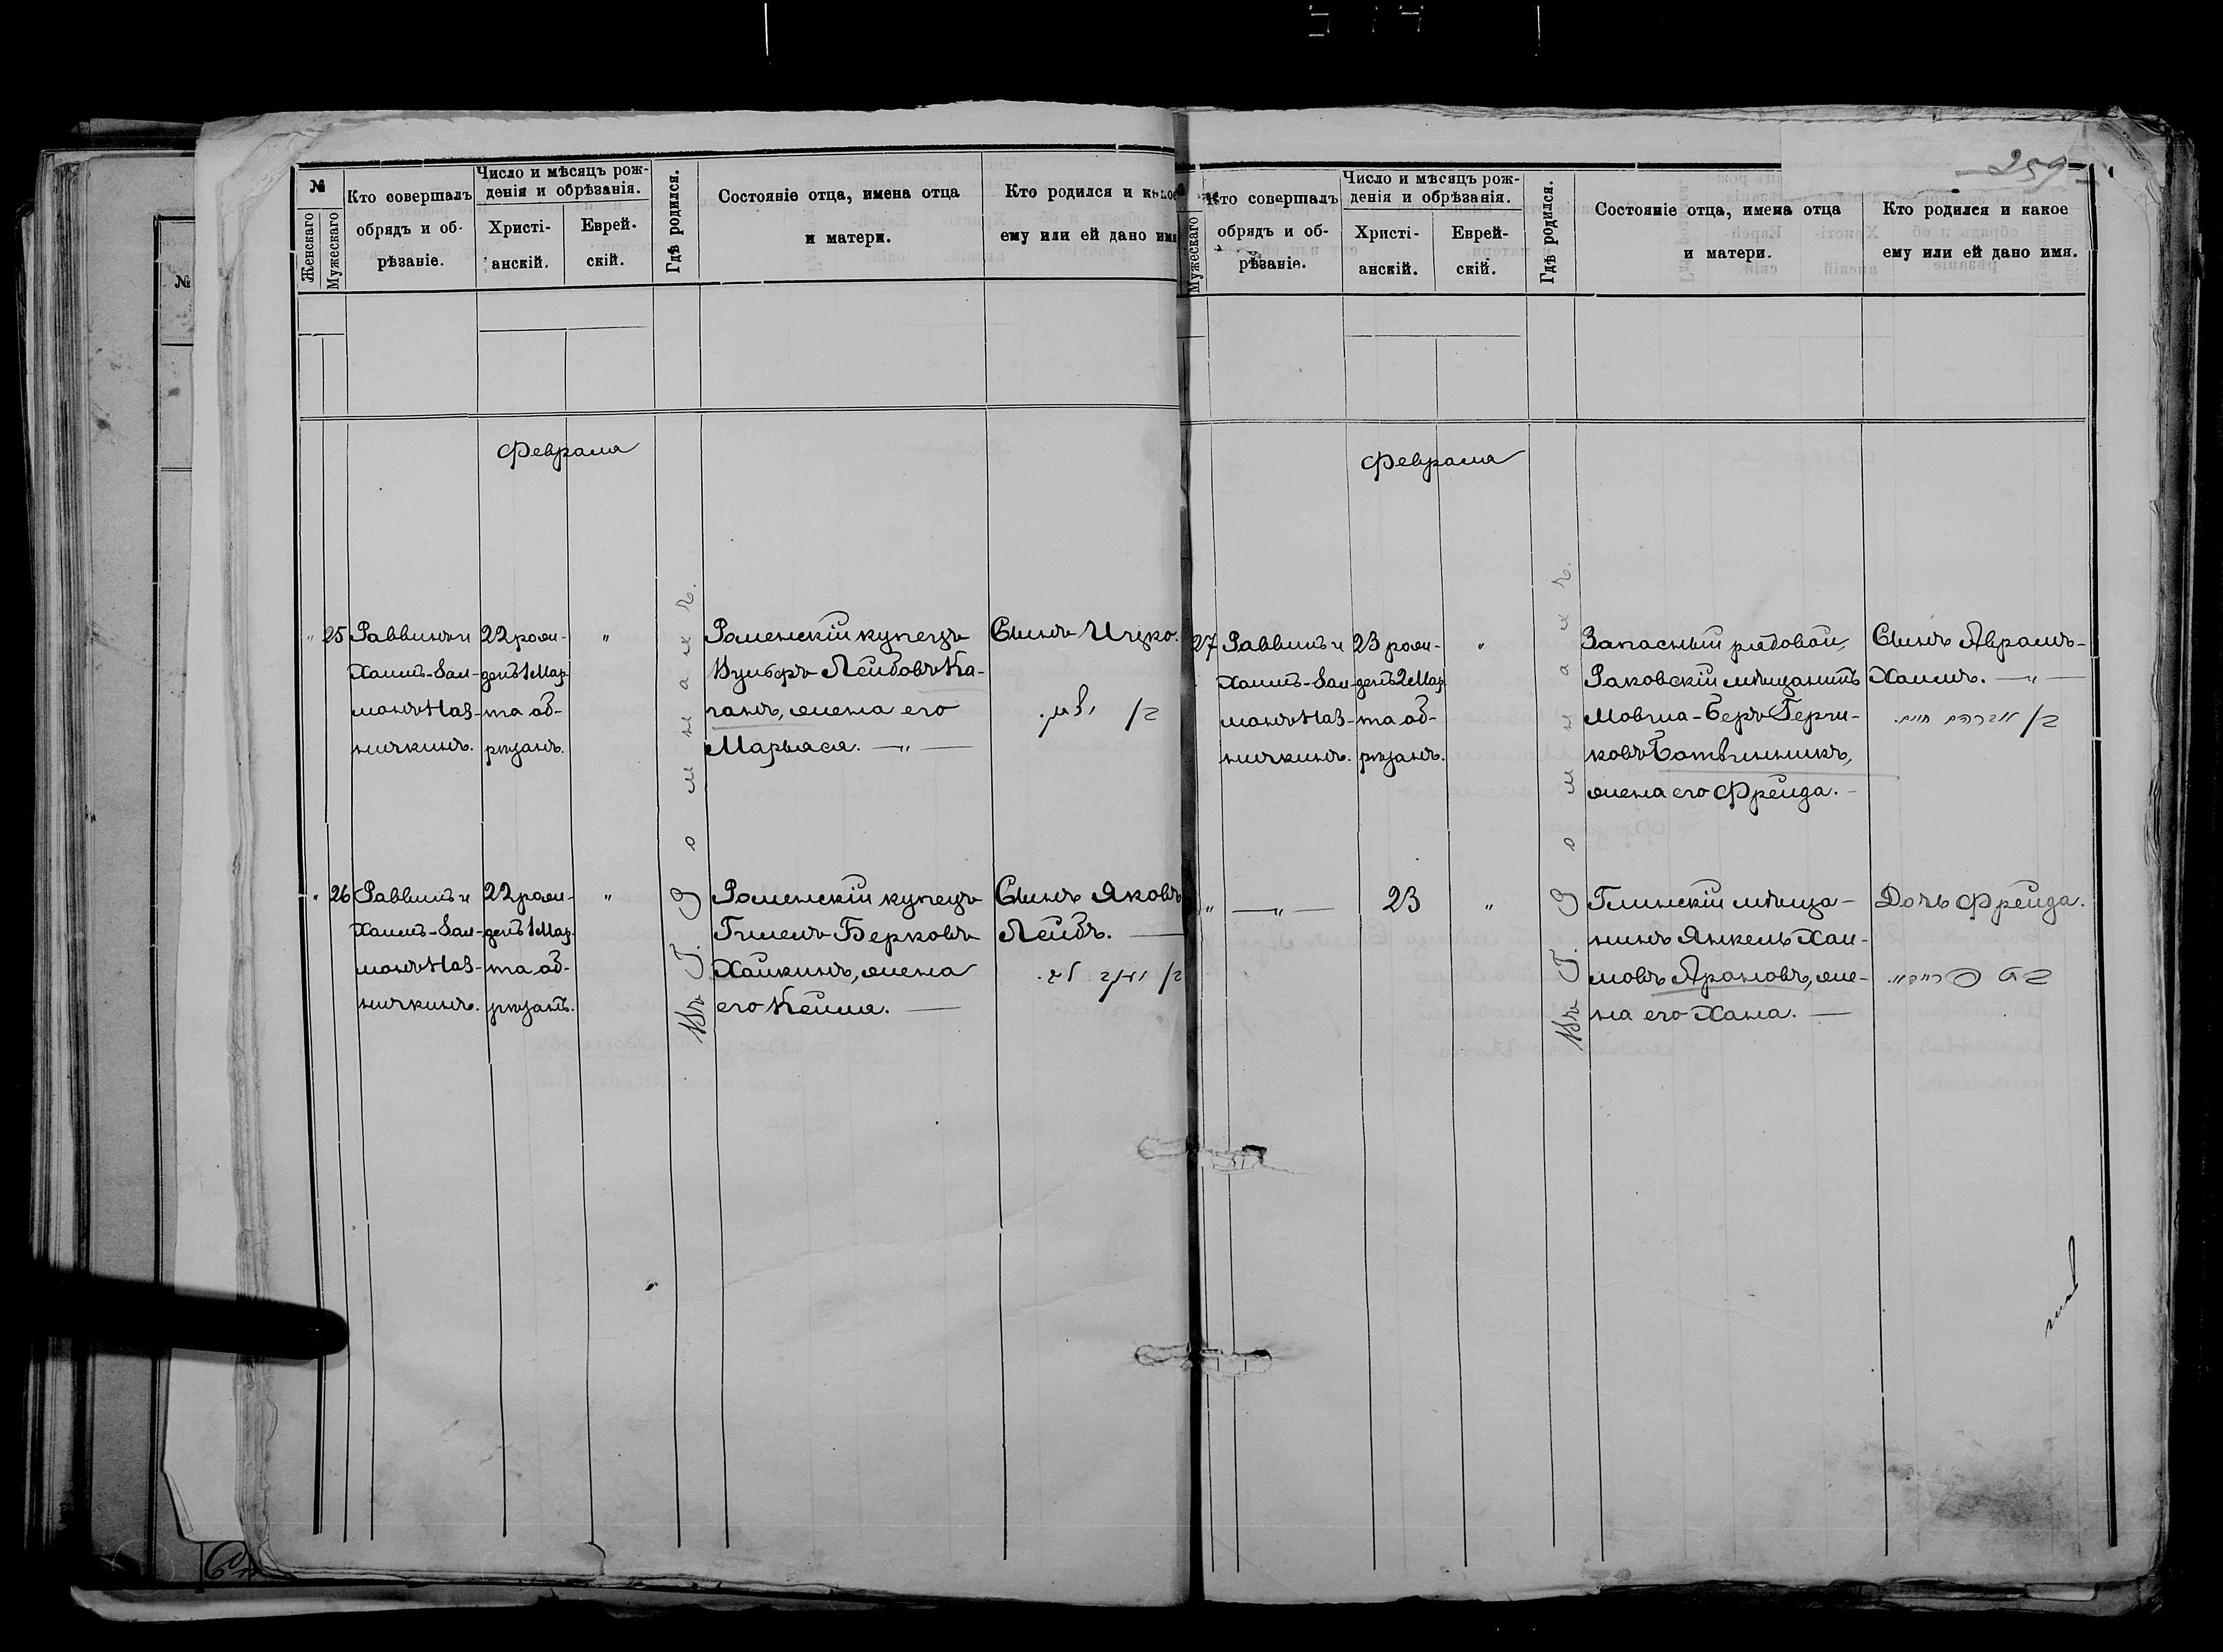 259
№
Женскаго
Мужескаго
Кто совершалъ
обрядъ и об-
рѣзаніе.
Число и мѣсяцъ рож-
денія и обрѣзанія.
Христі-
анскій.
Еврей-
скій.
Гдѣ родился.
Состояніе отца, имена отца
и матери.
Кто родился и какое
ему или ей дано имя
Февраля
25
Раввинъ и
Хаимъ-Зал-
манъ Наз-
ничкинъ.
22 рож-
денъ 1 Мар-
та об-
рѣзанъ.
"
Въ Г. Ромнахъ.
Роменскій купецъ
Вульфъ Лейбовъ Ка-
ганъ, жена его
Марьяся. — " —
Сынъ Ицко.
26
Раввинъ и
Хаимъ-Зал-
манъ Наз-
ничкинъ.
22 рож-
денъ 1 Мар-
та об-
рѣзанъ.
"
Роменскій купецъ
Гилелъ Берковъ
Хайкинъ, жена
его Кейля. —
Сынъ Яковъ
Лейбъ. —
Мужескаго
Кто совершалъ
обрядъ и об-
рѣзаніе.
Число и мѣсяцъ рож-
денія и обрѣзанія.
Христі-
анскій.
Еврей-
скій.
Гдѣ родился.
Состояніе отца, имена отца
и матери.
Кто родился и какое
ему или ей дано имя.
Февраля
27
Раввинъ и
Хаимъ-Зал-
манъ Наз-
ничкинъ.
23 рож-
денъ 2 Мар-
та об-
рѣзанъ.
"
Въ Г. Ромнахъ.
Запасный рядовой,
Раковскій мѣщанинъ
Мовша-Беръ Герш-
ковъ Ботвинникъ,
жена его Фрейда. —
Сынъ Абрамъ-
Хаимъ. — " —
ב/ אברהם חיים.
"
— " —
23
"
Глинскій мѣща-
нинъ Янкель Хаи-
мовъ Ароновъ, же-
на его Хана. —
Дочь Фрейда.
בת פריידא.